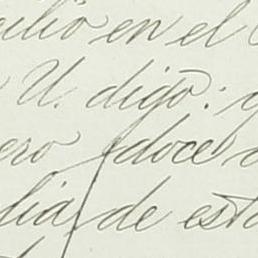 ilio en el
U. digo: y
ero doce
lia de esta